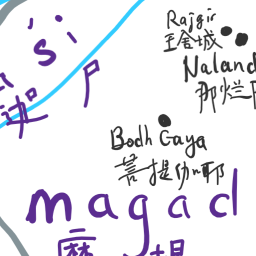 Rajgir
王舍城
si
Naland
那烂陀
尸
Bodh Gaya
菩提伽耶
magad
摩揭